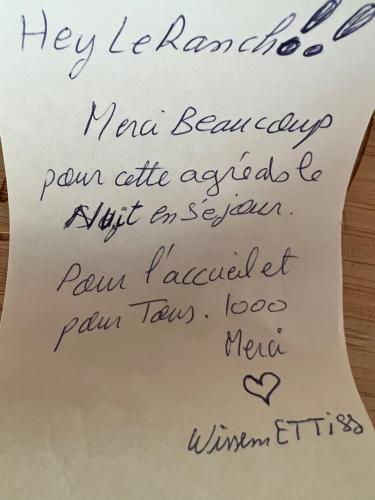 Hey Le Ranch!!!
Merci Beaucoup
pour cette agréable
Nuit en séjour.
Pour l'accueil et
pour Tous. 1000
Merci
♡
Wissem ETTiss